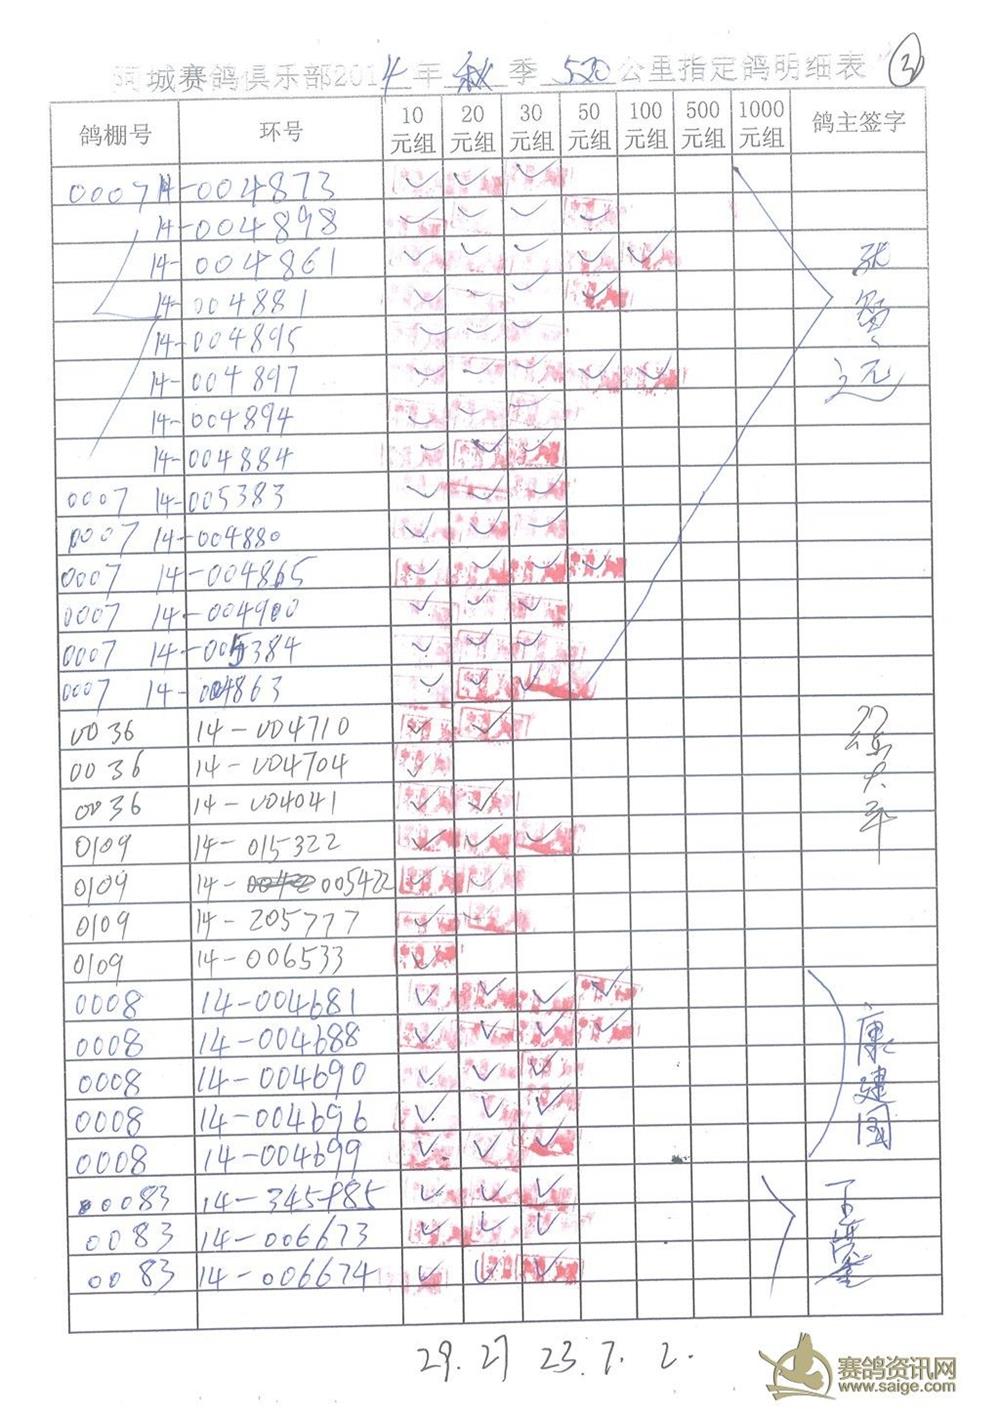 城赛鸽俱乐部2014年秋季520公里指定鸽明细表 3
鸽棚号 环号 10元组 20元组 30元组 50元组 100元组 500元组 1000元组 鸽主签字
0007 14-004873 ✓ ✓ ✓
14-004898 ✓ ✓ ✓ ✓
14-004861 ✓ ✓ ✓ ✓ ✓
14-004881 ✓ ✓ ✓ ✓
14-004895 ✓ ✓ ✓
14-004897 ✓ ✓ ✓ ✓ ✓
14-004894 ✓ ✓ ✓
14-004884 ✓ ✓ ✓
0007 14-005383 ✓ ✓ ✓
0007 14-004880 ✓ ✓ ✓
0007 14-004865 ✓ ✓ ✓ ✓
0007 14-004900 ✓ ✓ ✓
0007 14-005384 ✓ ✓ ✓
0007 14-004863 ✓ ✓ ✓
0036 14-004710 ✓ ✓
0036 14-004704 ✓
0036 14-004041 ✓ ✓
0109 14-015322 ✓ ✓ ✓
0109 14-005422 ✓ ✓
0109 14-205777 ✓ ✓
0109 14-006533 ✓
0008 14-004681 ✓ ✓ ✓ ✓
0008 14-004688 ✓ ✓ ✓ ✓
0008 14-004690 ✓ ✓ ✓
0008 14-004696 ✓ ✓ ✓
0008 14-004699 ✓ ✓ ✓
康建国
0083 14-345985 ✓ ✓ ✓
0083 14-006673 ✓ ✓ ✓
0083 14-006674 ✓ ✓ ✓
29. 27 23. 7. 2.
赛鸽资讯网
www.saige.com